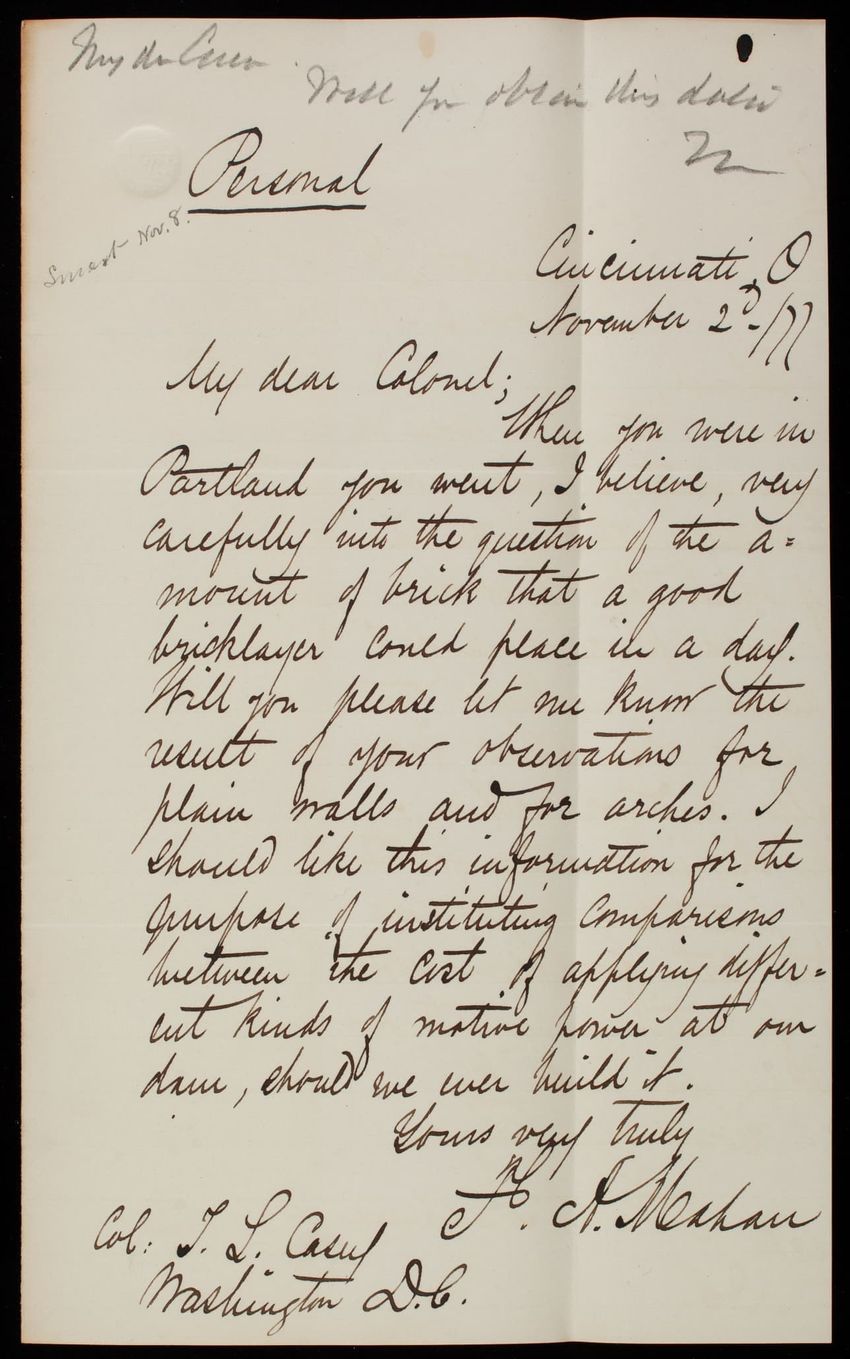 Will you obtain this
Personal
Nov. 8.
Cincinnati, O
November 2d /77
My dear Colonel;
When you were in
Portland you went, I believe, very
carefully into the question of the a=
mount of brick that a good
bricklayer could place in a day.
Will you please let me know the
result of your observations for
plain walls and for arches. I
should like this information for the
purpose of instituting comparisons
between the cost of applying differ=
ent kinds of motive power at our
dam, should we ever build it.
Yours very truly
F. A. Mahan
Col: T. L. Casey
Washington D.C.